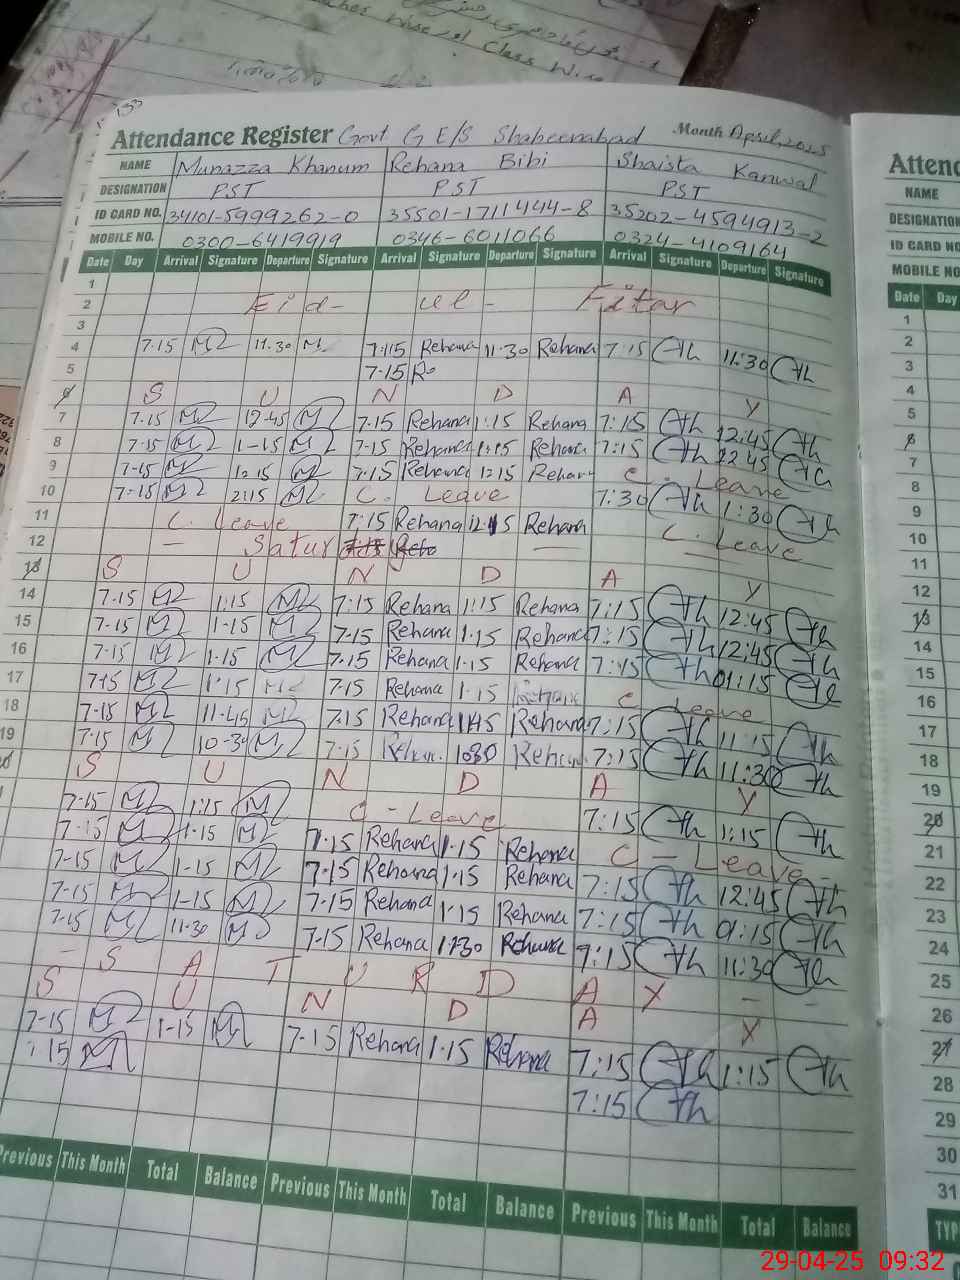 Class Wise
133
Attendance Register Govt G E/S Shaheenabad Month April, 2025
NAME Munazza Khanum Rehana Bibi Shaista Kanwal
DESIGNATION PST PST PST
ID CARD NO. 34101-5999262-0 35501-1711444-8 35202-4594913-2
MOBILE NO. 0300-6419919 0346-6011066 0324-4109164
Date Day Arrival Signature Departure Signature Arrival Signature Departure Signature Arrival Signature Departure Signature
1
2 Eid- ul- Fitar
3
4 7.15 11.30 7:15 Rehana 11.30 Rehana 7:15 11:30
5 7.15
6 S U N D A Y
7 7.15 12.45 7.15 Rehana 1:15 Rehana 7:15 12:45
8 7.15 1-15 7-15 Rehana 1:15 Rehana 7:15 12:45
9 7-15 12.15 7.15 Rehana 12:15 Rehana C. Leave
10 7-15 2:15 C. Leave 7:30 1:30
11 C. Leave 7:15 Rehana 12.15 Rehana C. Leave
12 - Satur
13 S U N D A Y
14 7-15 1:15 7:15 Rehana 1:15 Rehana 7:15 12:45
15 7-15 1-15 7-15 Rehana 1.15 Rehana 7:15 12:45
16 7-15 1-15 7-15 Rehana 1.15 Rehana 7:15 01:15
17 7-15 1:15 7.15 Rehana 1.15 Rehana C Leave
18 7-15 11-45 7.15 Rehana 11:45 Rehana 7:15 11:15
19 7-15 10-30 7:15 Rehana 10:30 Rehana 7:15 11:30
S U N D A Y
7-15 1:15 C - Leave 7:15 1:15
7-15 1-15 7.15 Rehana 1.15 Rehana C - Leave -
7-15 1-15 7.15 Rehana 1.15 Rehana 7:15 12:45
7-15 1-15 7.15 Rehana 1:15 Rehana 7:15 01:15
7-15 11-30 7-15 Rehana 11:30 Rehana 7:15 11:30
- S A T U R D A Y - -
S U N D A Y
7-15 1-15 7-15 Rehana 1.15 Rehana 7:15 1:15
15 7:15
Previous This Month Total Balance Previous This Month Total Balance Previous This Month Total Balance
Attend
NAME
DESIGNATION
ID CARD NO
MOBILE NO
Date Day
1
2
3
4
5
6
7
8
9
10
11
12
13
14
15
16
17
18
19
20
21
22
23
24
25
26
27
28
29
30
31
TYP
29-04-25 09:32